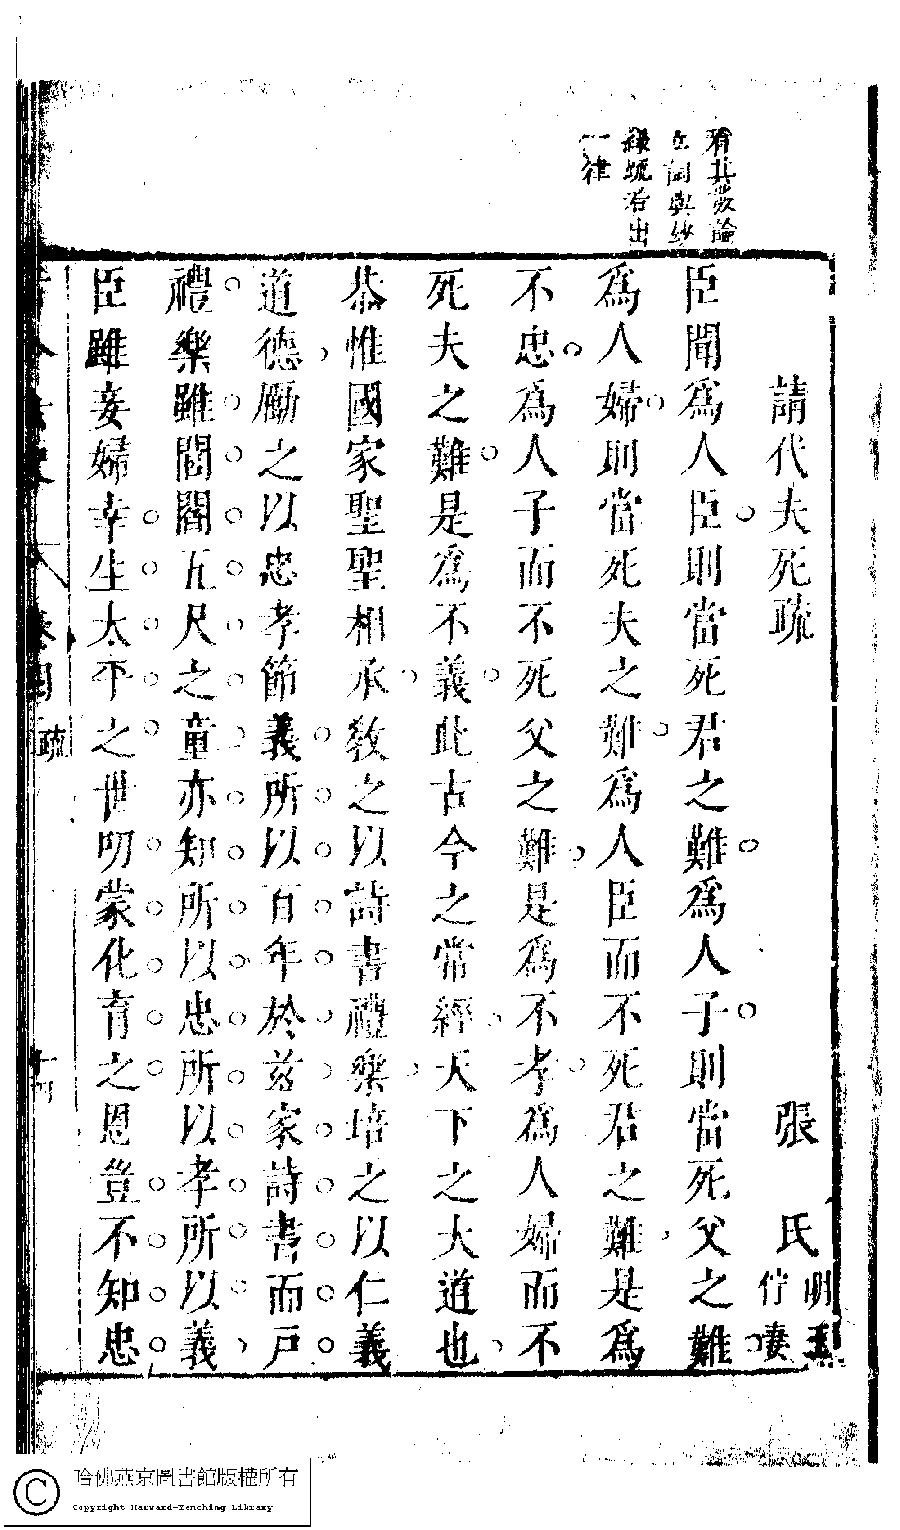 看其發論
立閫與紗
縣疏若出
一律
請代夫死疏 張氏 明王佇妻
臣聞爲人臣則當死君之難爲人子則當死父之難
爲人婦則當死夫之難爲人臣而不死君之難是爲
不忠爲人子而不死父之難是爲不孝爲人婦而不
死夫之難是爲不義此古今之常經天下之大道也
恭惟國家聖聖相承敎之以詩書禮樂培之以仁義
道德勵之以忠孝節義所以百年於茲家詩書而戸
禮樂雖閭閻五尺之童亦知所以忠所以孝所以義
臣雖妾婦幸生太平之世叨蒙化育之恩豈不知忠
卷四 疏
哈佛燕京圖書館版權所有
Copyright Harvard-Yenching Library